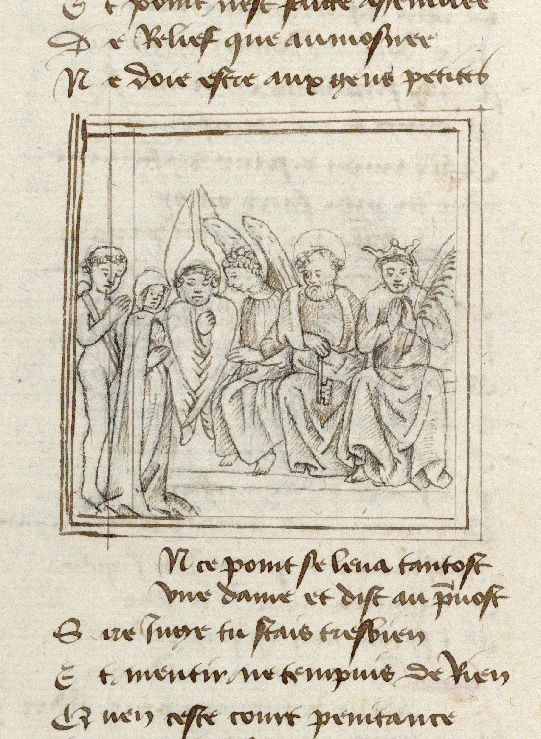 E t point nest faicte assemblee
D e Relief que aumosnee
N e doie estre aux gens petites
N ce point se leua tantost
vne dame et dist au p̄uost
S ire Iuge tu scais tresbien
E t mentir ne tempuis de Rien
Q uen ceste court penitance